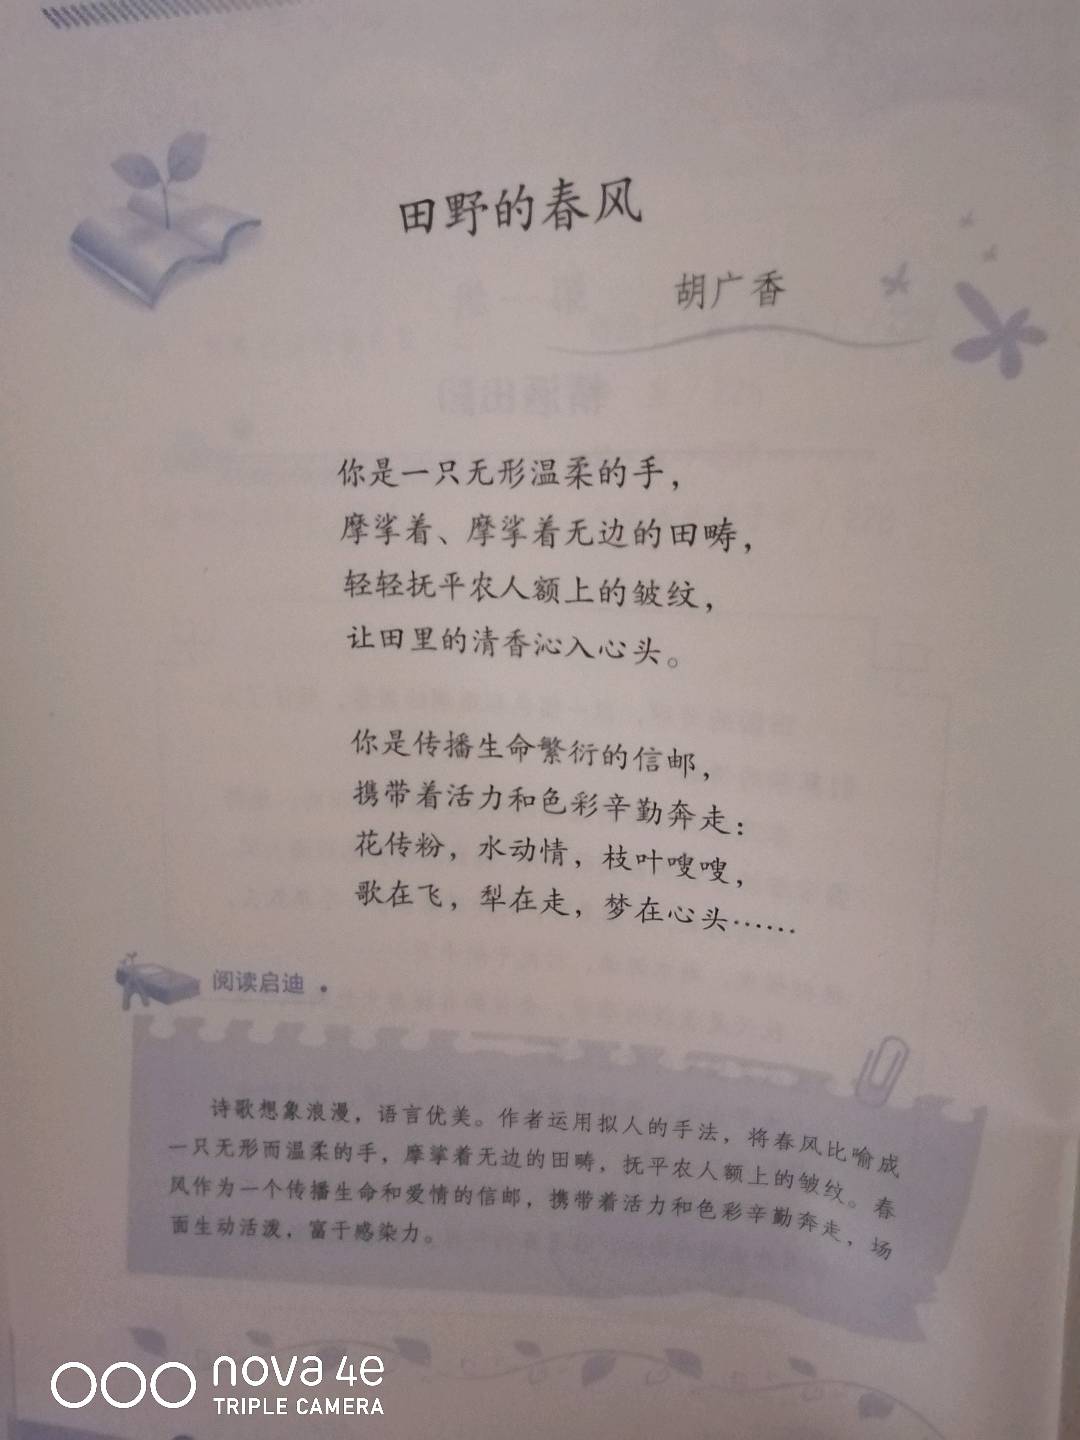 田野的春风
胡广香
你是一只无形温柔的手，
摩挲着、摩挲着无边的田畴，
轻轻抚平农人额上的皱纹，
让田里的清香沁入心头。
你是传播生命繁衍的信邮，
携带着活力和色彩辛勤奔走：
花传粉，水动情，枝叶嗖嗖，
歌在飞，犁在走，梦在心头……
阅读启迪
诗歌想象浪漫，语言优美。作者运用拟人的手法，将春风比喻成
一只无形而温柔的手，摩挲着无边的田畴，抚平农人额上的皱纹。春
风作为一个传播生命和爱情的信邮，携带着活力和色彩辛勤奔走，场
面生动活泼，富于感染力。
nova 4e
TRIPLE CAMERA